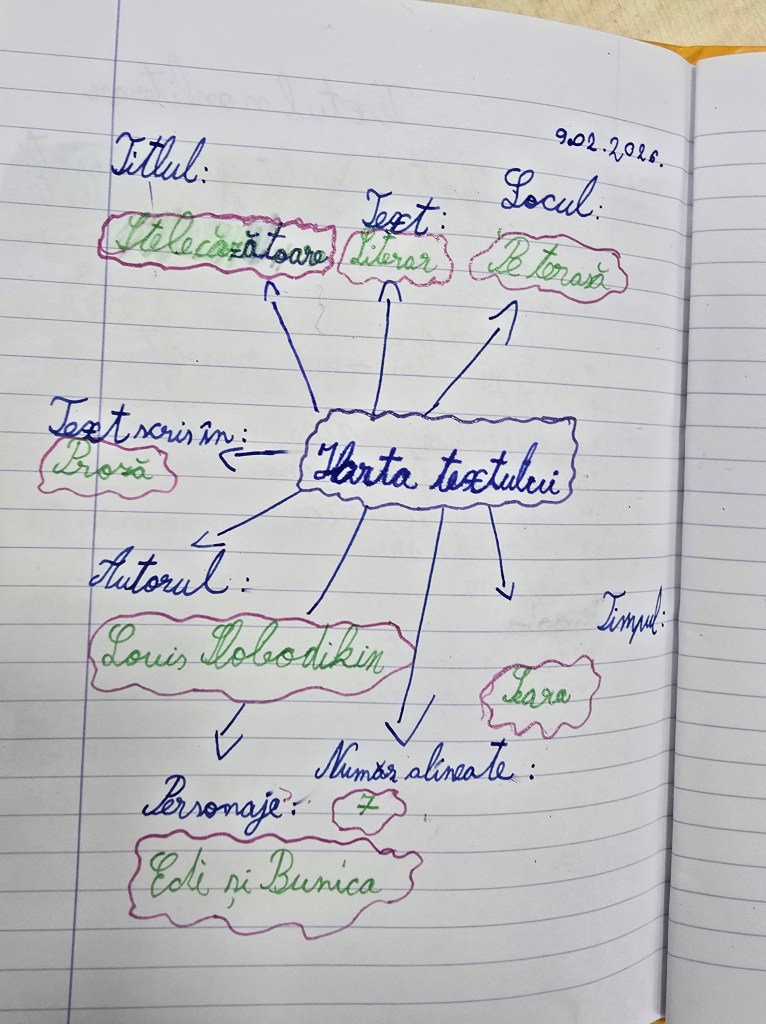 9.02.2026.
Titlul:
Stelecăzătoare
Text:
Literar
Locul:
Pe terasă
Text scris în:
Proză
Harta textului
Autorul:
Louis Slobodikin
Timpul:
Seara
Număr alineate:
7
Personaje:
Edi și Bunica